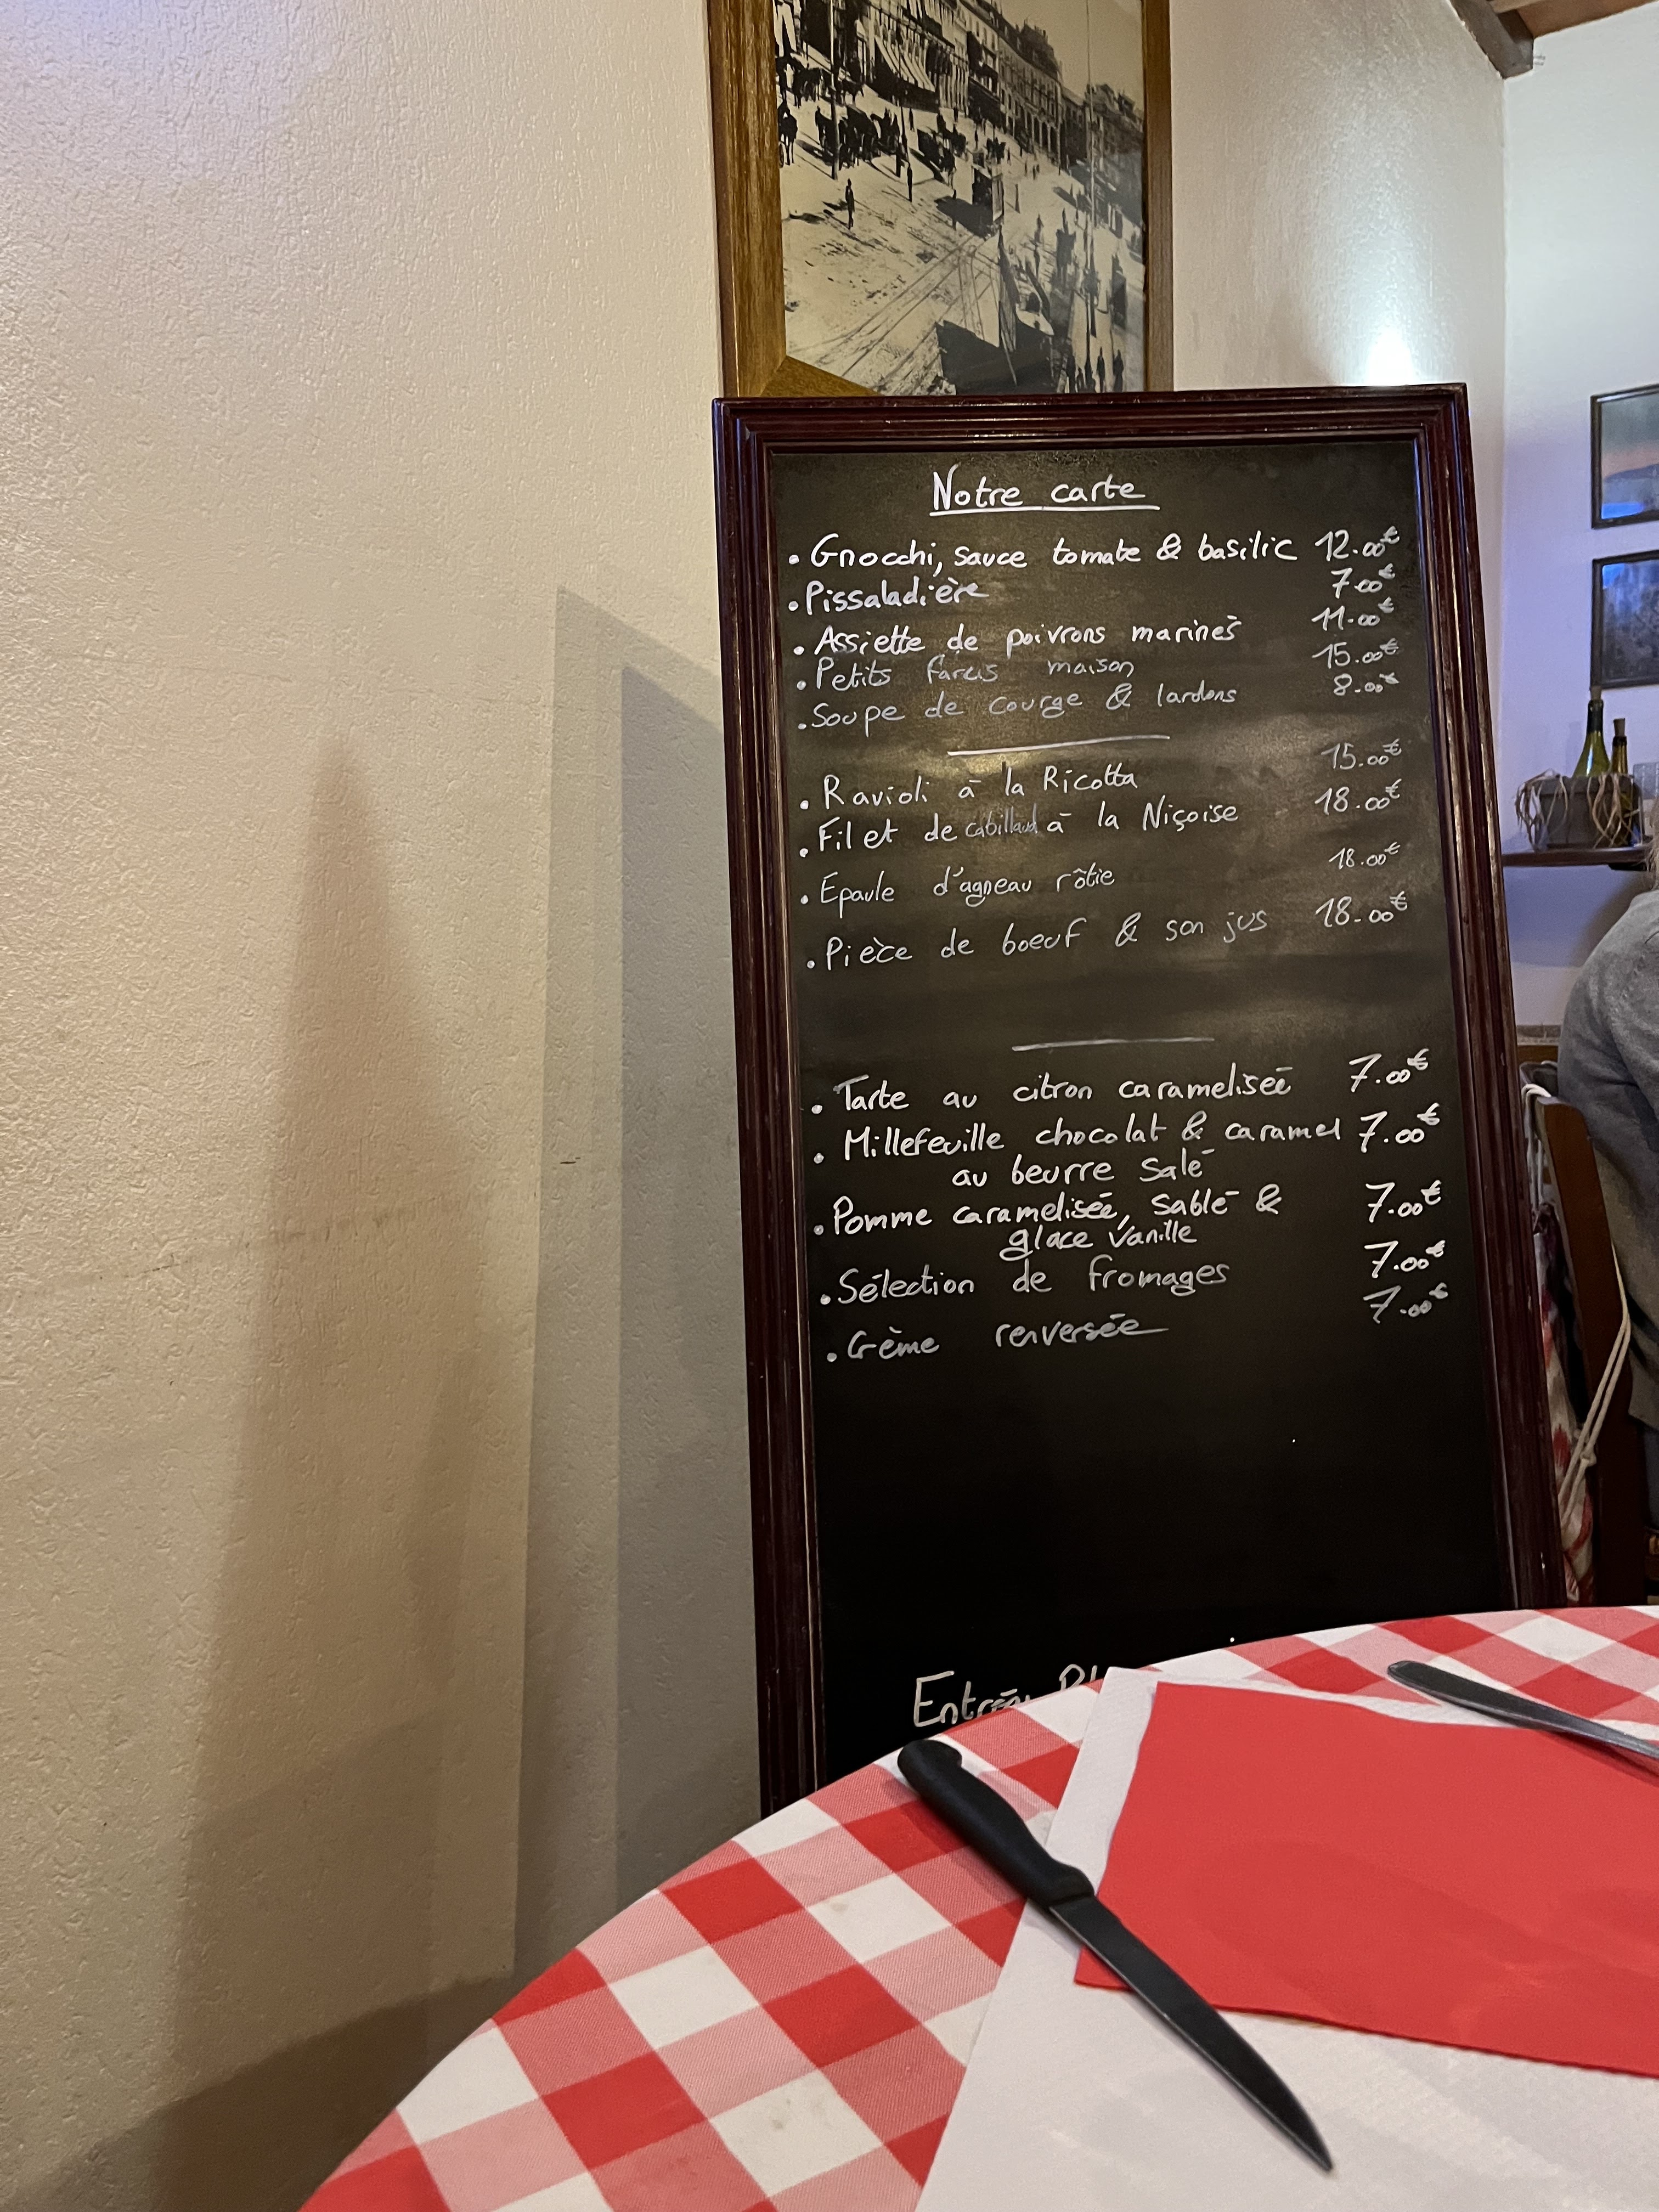 Notre carte
. Gnocchi, sauce tomate & basilic 12.00€
. Pissaladière 7.00€
. Assiette de poivrons marinés 11.00€
. Petits farcis maison 15.00€
. Soupe de courge & lardons 8.00€
. Ravioli à la Ricotta 15.00€
. Filet de cabillaud à la Niçoise 18.00€
. Epaule d'agneau rôtie 18.00€
. Pièce de boeuf & son jus 18.00€
. Tarte au citron caramelisée 7.00€
. Millefeuille chocolat & caramel 7.00€
au beurre salé
. Pomme caramelisée, sablé & 7.00€
glace vanille
. Sélection de fromages 7.00€
. Crème renversée 7.00€